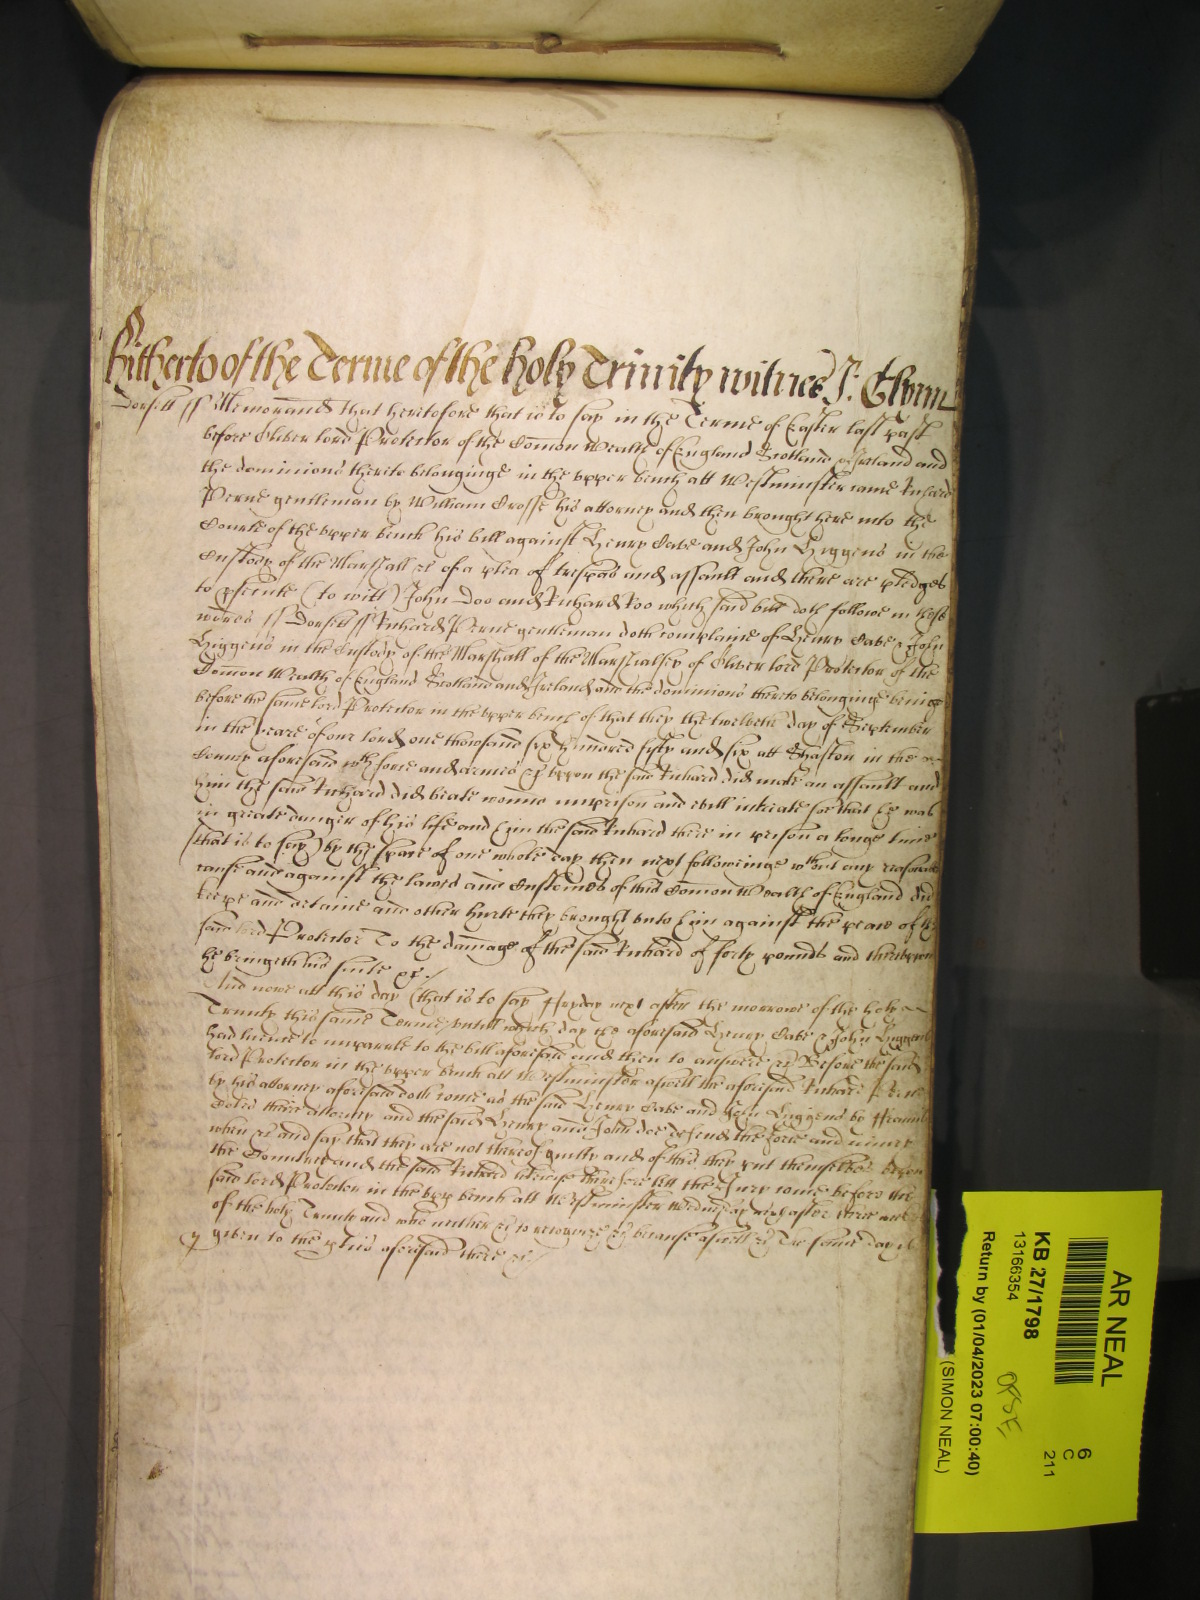 Hitherto of the Terme of the holy Trinity witnes J: Glynn
Dorsett ss Memorand that heretofore that is to say in the Terme of Easter last past
before Oliver lord Protector of the Comon Wealth of England Scotland & Ireland and
the dominions thereto belonginge in the upper bench att Westminster came Richard
Perne gentleman by William Crosse his attorney and then brought here into the
Courte of the upper bench his bill against Henry Cave and John Higgens in the
Custody of the Marshall &c of a plea of trespas and assault and there are pledges
to psecute (to witt) John Doo and Richard Roo which said bill doth followe in these
words ss Dorsett ss Richard Perne gentleman doth complaine of Henry Cave & John
Higgens in the Custody of the Marshall of the Marshalsey of Oliver lord Protector of the
Comon Wealth of England Scotland and Ireland and the dominions thereto belonginge beinge
before the same lord Protector in the upper bench of that they the twelveth day of September
in the yeare of our lord one thowsand six hundred fifty and six att Shaston in the
County aforesaid wth force and armes &c uppon the said Richard did make an assault and
him the said Richard did beate wound imprison and evill intreate soe that he was
in greate danger of his life and him the said Richard there in prison a longe time
(that is to say) by the space of one whole day then next followeinge wthout any reasonable
cause and against the lawes and Customes of this Comon Wealth of England did
keepe and detaine and other hurts they brought unto him against the peace of the
said lord Protector To the damage of the said Richard of forty pounds and thereuppon
he bringeth his suite &c /
And nowe att this day (that is to say fryday next after the morrowe of the holy
Trinity this same Terme untill which day the aforesaid Henry Cave & John Higgens
had licence to imparle to the bill aforesaid and then to answere &c Before the said
lord Protector in the upper bench att Westminster aswell the aforesaid Richard Perne
by his attorney aforesaid doth come as the said Henry Cave and John Higgens by
theire attorney and the said Henry and John doe defend the force and iniury
when &c and say that they are not thereof guilty and of this they put themselves upon
the Country and the said Richard likewise therefore lett the Jury come before the
said lord Protector in the upp bench att Westminster Wednesday next after three weekes
of the holy Trinity and who neither &c to recognize &c because aswell &c The same day is
given to the pties aforesaid there &c /
AR NEAL
KB 27/1798
13166354
Return by (01/04/2023 07:00:40)
(SIMON NEAL)
6
C
211